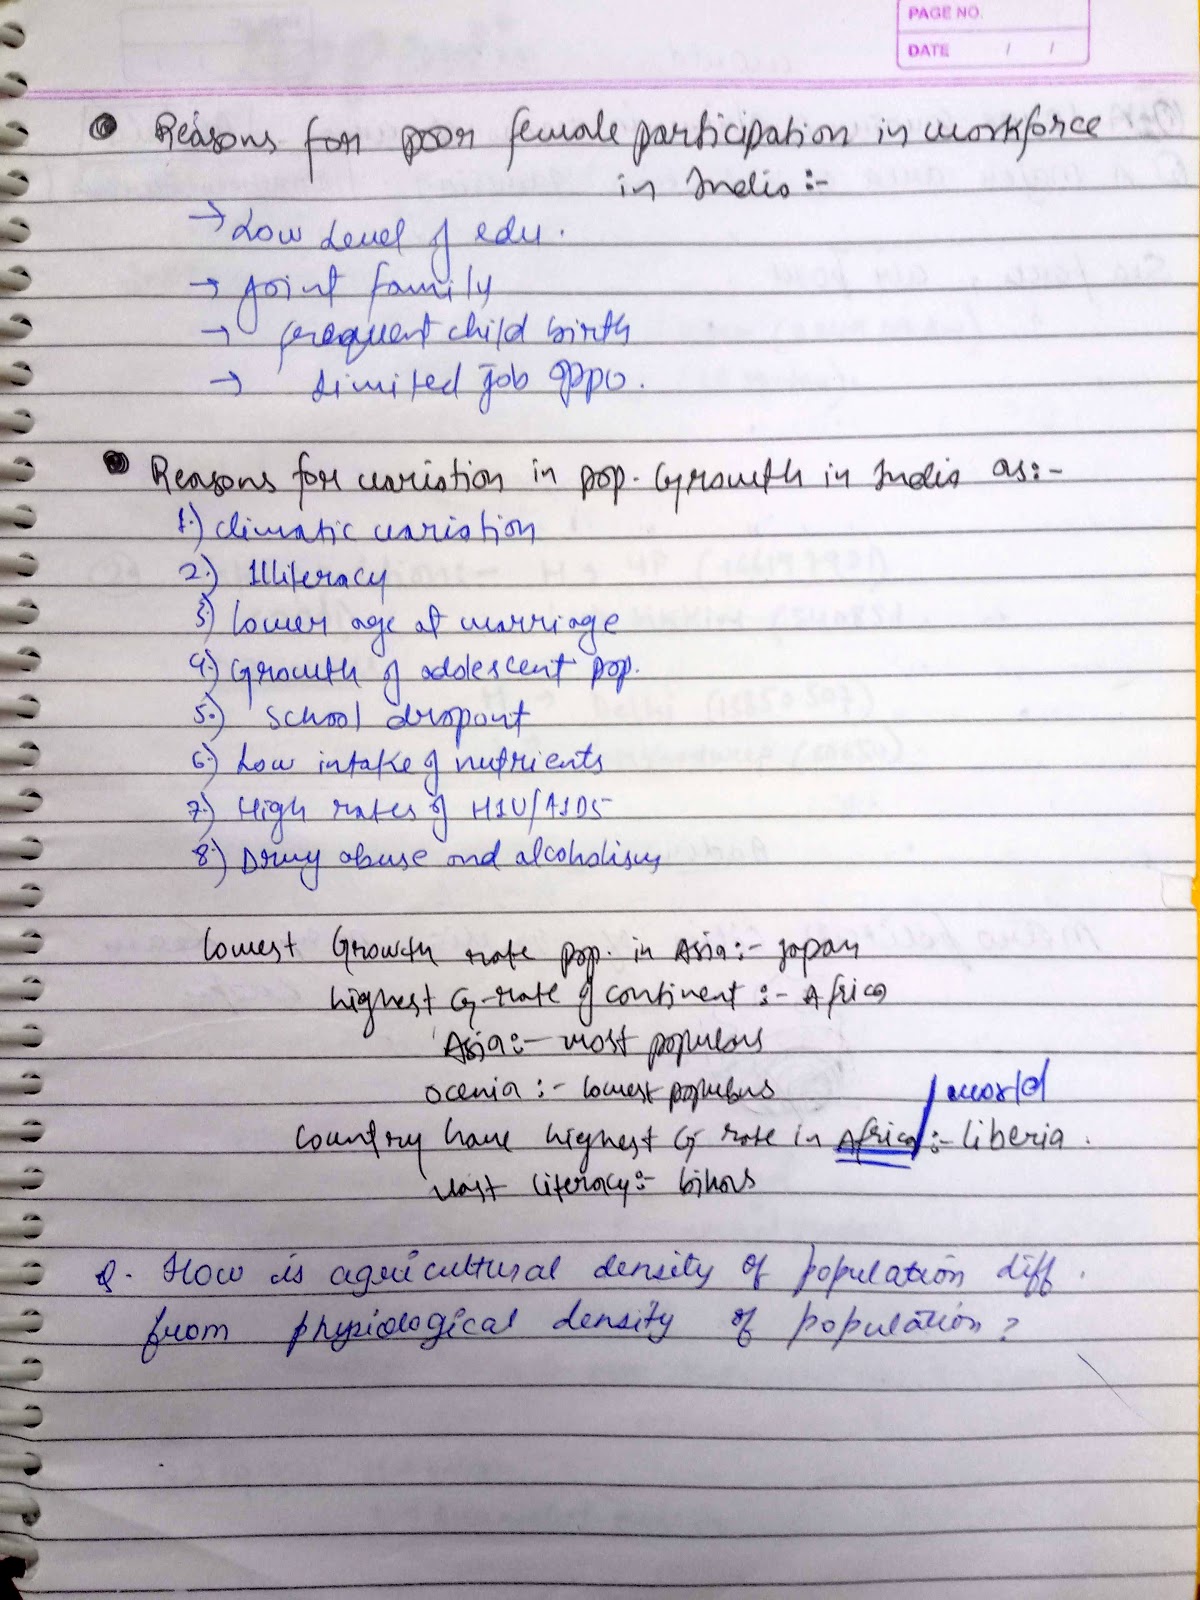 PAGE NO.
DATE / /
Reasons for poor female participation in workforce
in India :-
→ Low Level of edu.
→ Joint family
→ frequent child birth
→ Limited job oppo.
Reasons for variation in pop. Growth in India as:-
1.) climatic variation
2.) Illiteracy
3.) lower age at marriage
4.) Growth of adolescent pop.
5.) School dropout
6.) Low intake of nutrients
7.) High rates of HIV/AIDS
8.) Drug abuse and alcoholism
lowest Growth rate pop. in Asia :- Japan
highest G-rate of continent :- Africa
Asia :- most populous
ocenia :- lowest populous
world
Country have highest G rate in Africa / :- liberia.
literacy :-
Q. How is agricultural density of population diff.
from physiological density of population?